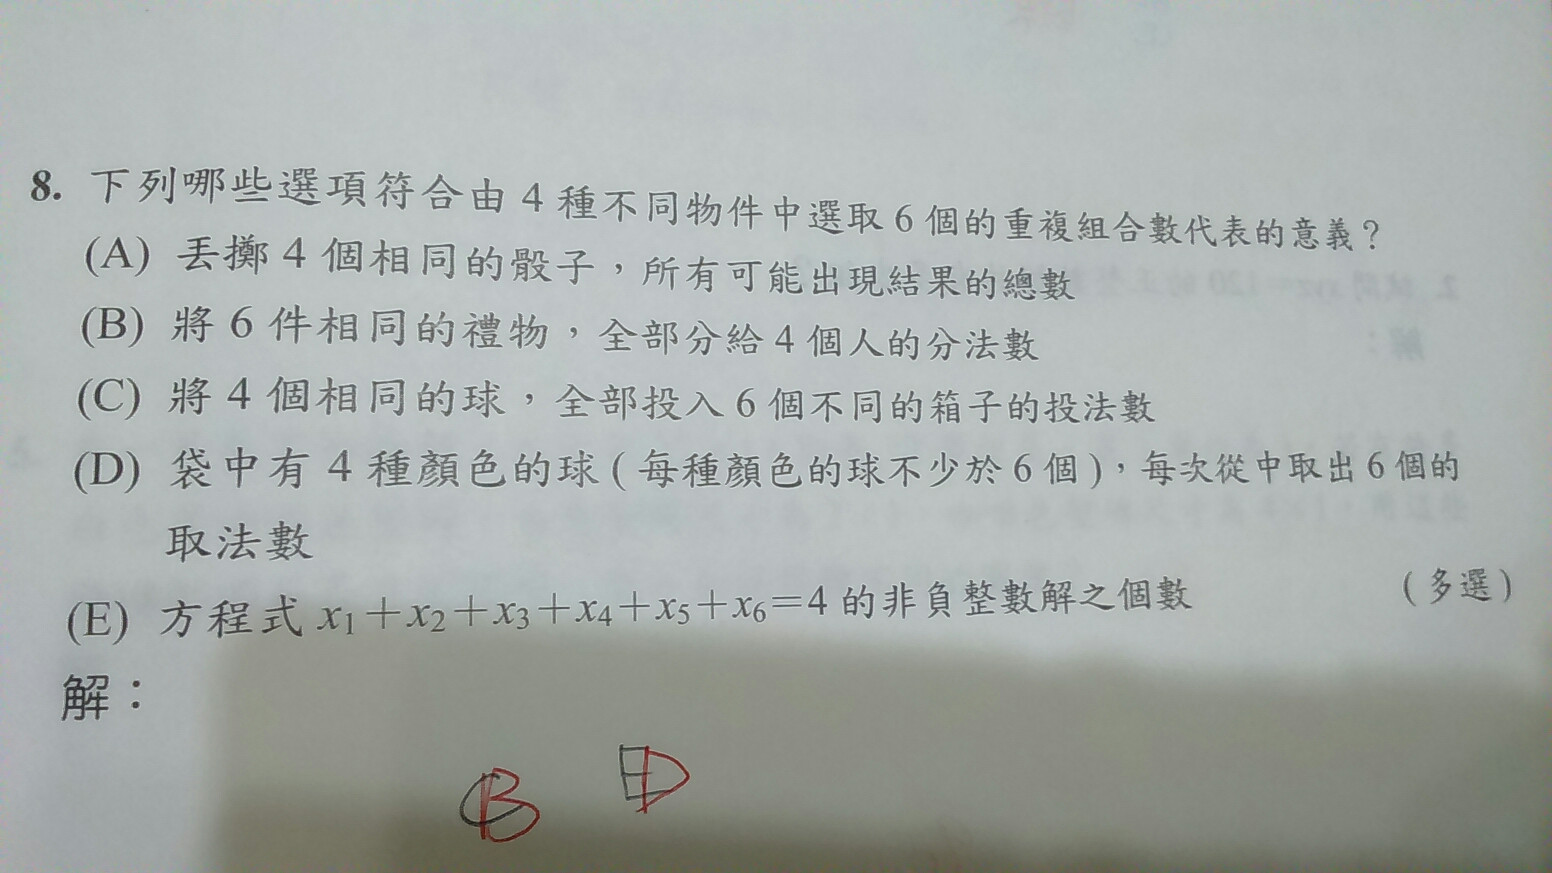 8. 下列哪些選項符合由 4 種不同物件中選取 6 個的重複組合數代表的意義？
(A) 丟擲 4 個相同的骰子，所有可能出現結果的總數
(B) 將 6 件相同的禮物，全部分給 4 個人的分法數
(C) 將 4 個相同的球，全部投入 6 個不同的箱子的投法數
(D) 袋中有 4 種顏色的球（每種顏色的球不少於 6 個），每次從中取出 6 個的
取法數
(E) 方程式 x₁＋x₂＋x₃＋x₄＋x₅＋x₆＝4 的非負整數解之個數 （多選）
解：
B D